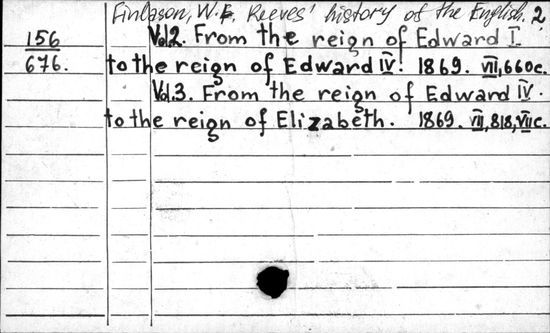 Finlason, W.F. Reeves' history of the English. 2
156
676.
Vol.2. From the reign of Edward I.
to the reign of Edward IV. 1869. VII, 660c.
Vol.3. From the reign of Edward IV.
to the reign of Elizabeth. 1869. VII, 818, VIIc.